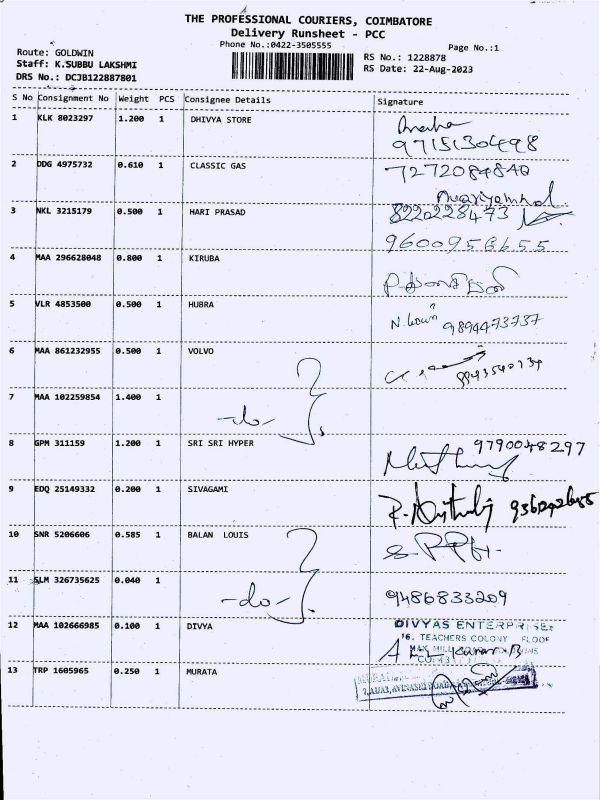 THE PROFESSIONAL COURIERS, COIMBATORE
Delivery Runsheet - PCC
Phone No.:0422-3505555
Page No.:1
Route: GOLDWIN
Staff: K.SUBBU LAKSHMI
DRS No.: DCJB122887801
RS No.: 1228878
RS Date: 22-Aug-2023
S No Consignment No Weight PCS Consignee Details Signature
1 KLK 8023297 1.200 1 DHIVYA STORE
9715130498
2 DDG 4975732 0.610 1 CLASSIC GAS 7272084840
3 NKL 3215179 0.500 1 HARI PRASAD 8220228473
9600956655
4 MAA 296628048 0.800 1 KIRUBA
5 VLR 4853500 0.500 1 HUBRA
9894473737
6 MAA 861232955 0.500 1 VOLVO
7 MAA 102259854 1.400 1 -do-
8 GPM 311159 1.200 1 SRI SRI HYPER 9790048297
9 EDQ 25149332 0.200 1 SIVAGAMI
10 SNR 5206606 0.585 1 BALAN LOUIS
11 SLM 326735625 0.040 1 -do- 9486833209
12 MAA 102666985 0.100 1 DIVYA
DIVYAS ENTERPRISE
16, TEACHERS COLONY
13 TRP 1605965 0.250 1 MURATA